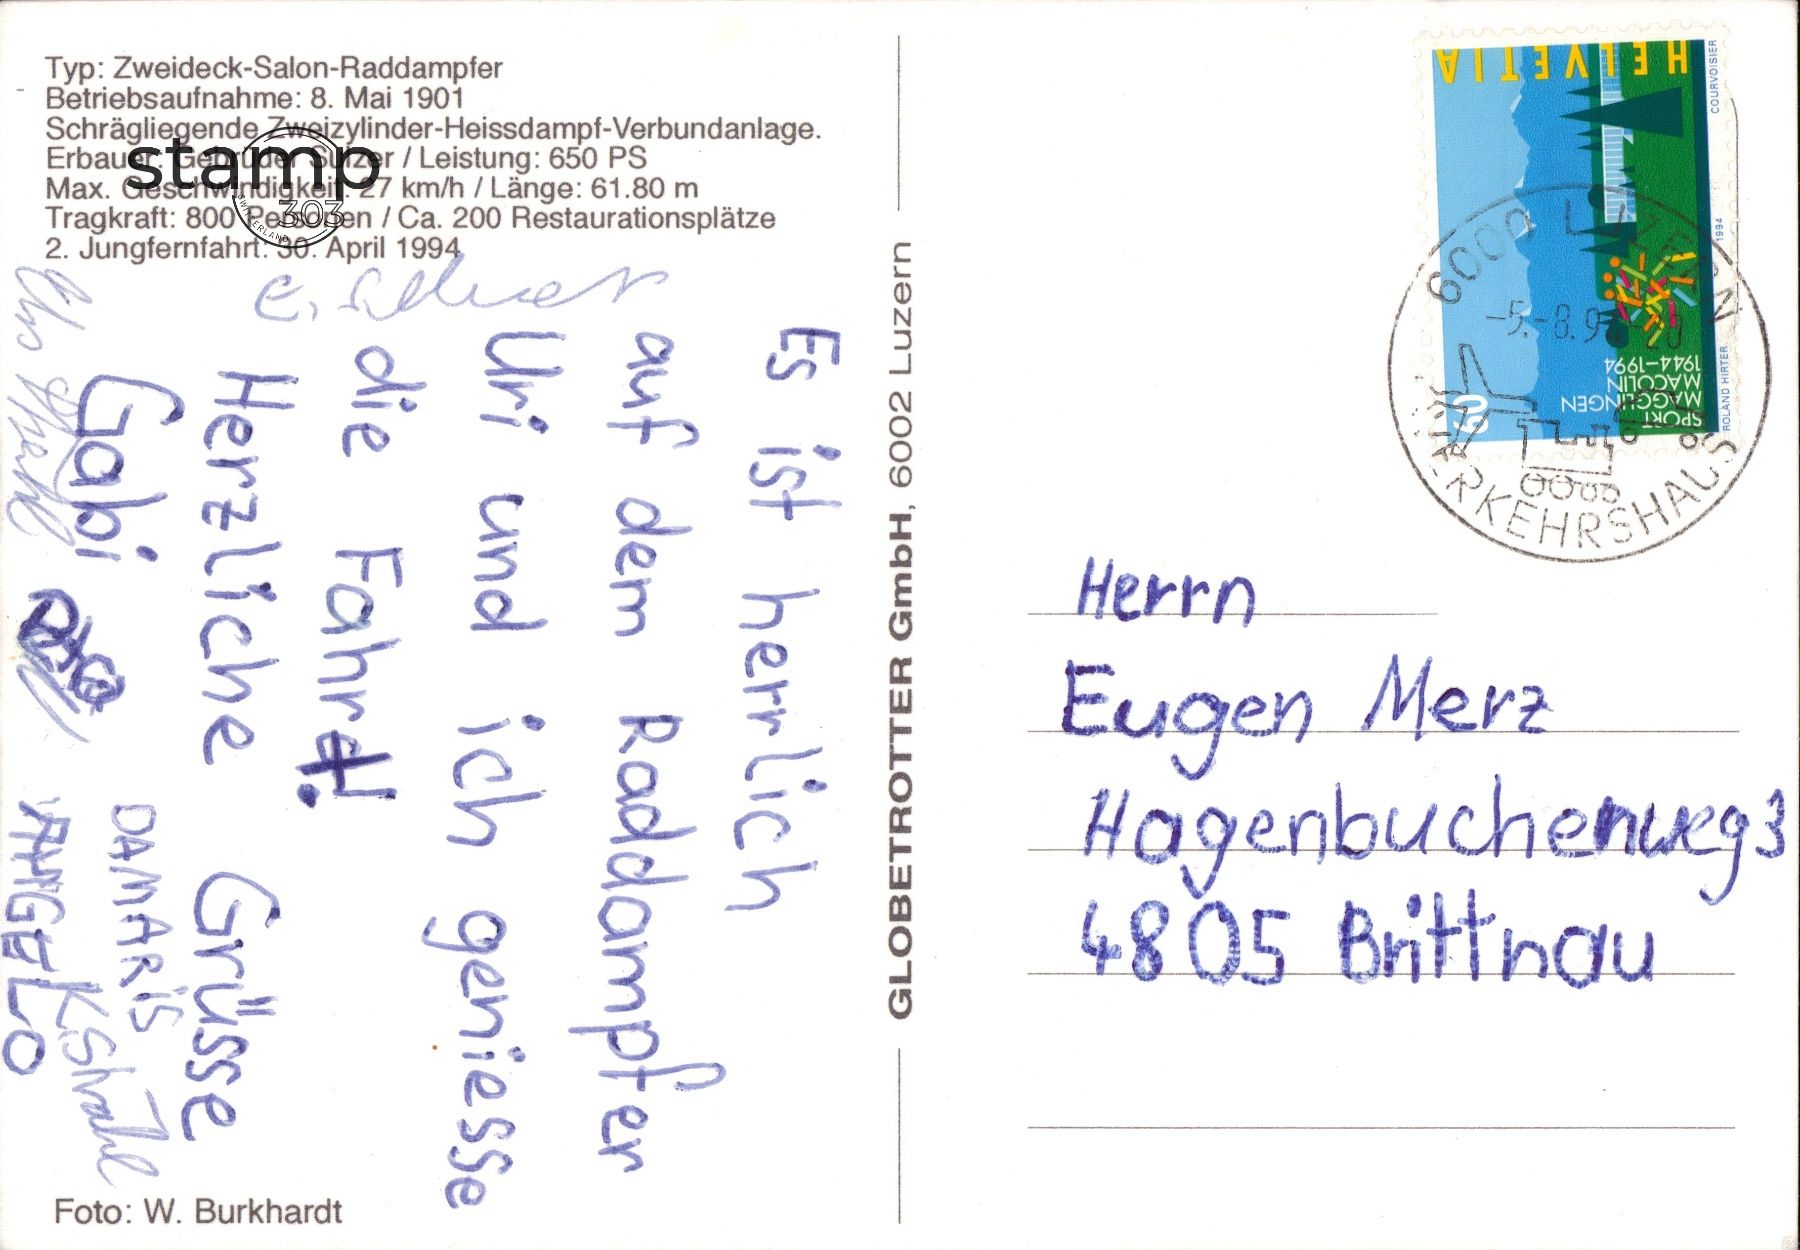 Typ: Zweideck-Salon-Raddampfer
Betriebsaufnahme: 8. Mai 1901
Schrägliegende Zweizylinder-Heissdampf-Verbundanlage.
Erbauer: Gebrüder Sulzer / Leistung: 650 PS
Max. Geschwindigkeit: 27 km/h / Länge: 61.80 m
Tragkraft: 800 Personen / Ca. 200 Restaurationsplätze
2. Jungfernfahrt: 30. April 1994
stamp
303
SWITZERLAND
Es ist herrlich
auf dem Raddampfer
Uri und ich geniesse
die Fahrt!
Herzliche Grüsse
Gabi
DAMARIS
ANGELO
K Strahl
Foto: W. Burkhardt
GLOBETROTTER GmbH, 6002 Luzern
HELVETIA
COURVOISIER
1994
ROLAND HIRTER
SPORT
MAGGLINGEN
MACOLIN
1944–1994
60
6000 LUZERN
-5.-8.9
VERKEHRSHAUS
Herrn
Eugen Merz
Hagenbuchenweg 3
4805 Brittnau